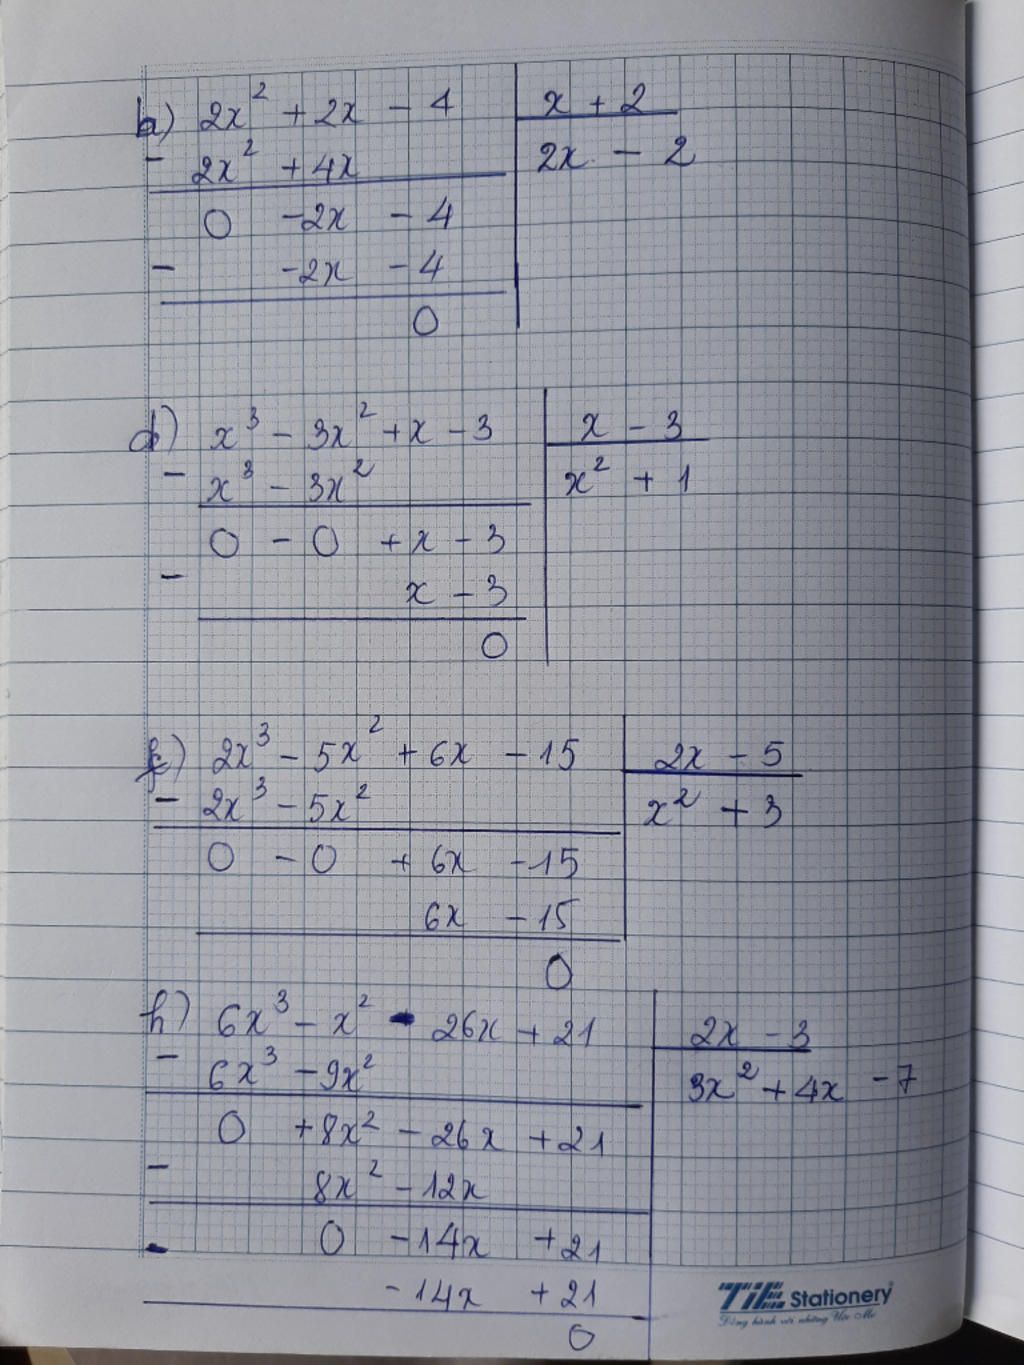 b) 2x² + 2x - 4 | x + 2
- 2x² + 4x | 2x - 2
0 -2x - 4
- -2x - 4
0
d) x³ - 3x² + x - 3 | x - 3
- x³ - 3x² | x² + 1
0 - 0 + x - 3
- x - 3
0
f) 2x³ - 5x² + 6x - 15 | 2x - 5
- 2x³ - 5x² | x² + 3
0 - 0 + 6x - 15
6x - 15
0
h) 6x³ - x² - 26x + 21 | 2x - 3
- 6x³ - 9x² | 3x² + 4x - 7
0 + 8x² - 26x + 21
- 8x² - 12x
0 - 14x + 21
- -14x + 21
0
TiE Stationery
Đồng hành với những Ước Mơ